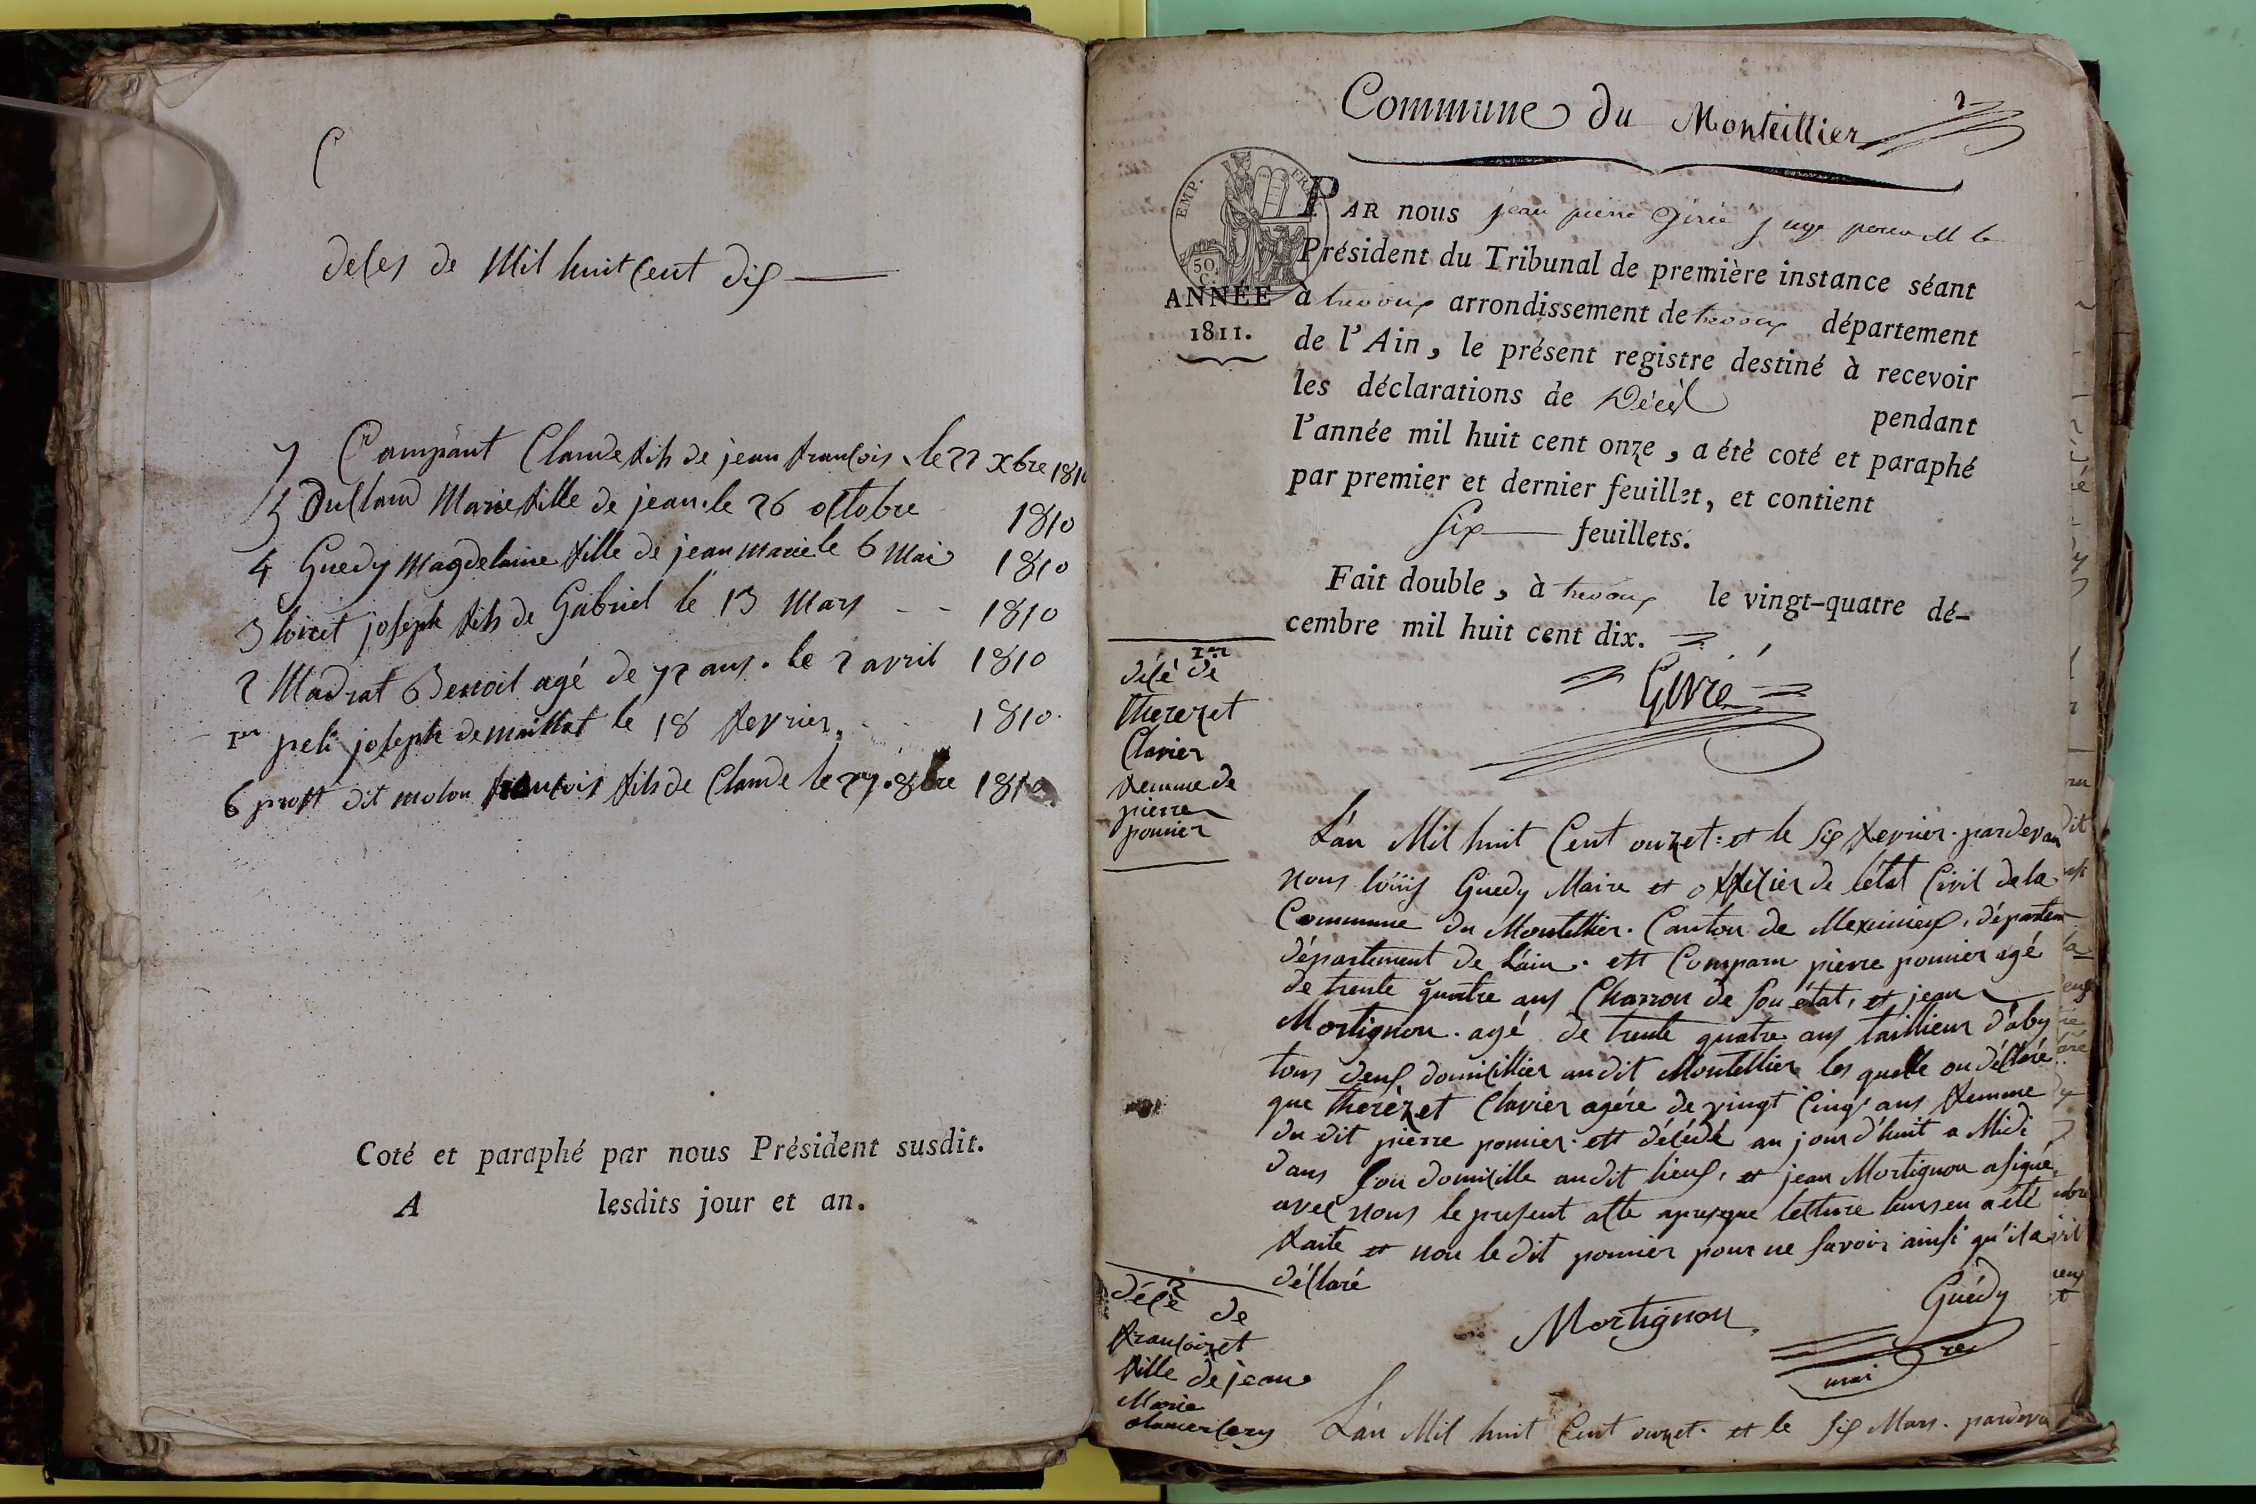 C
deces de Mil huit Cent dix
7 Compant Claude fils de jean francois le 22 Xbre 1810
5 Dullaud Marie fille de jean le 26 octobre 1810
4 Guedy Magdelaine fille de jean marie le 6 Mai 1810
3 loiret joseph fils de Gabriel le 13 Mars - - 1810
2 Madrat Benoit agé de 72 ans. le 2 avril 1810
1er peli joseph de maillat le 18 fevrier. 1810.
6 prost dit molon francois fils de Claude le 27. 8bre 1810
Coté et paraphé par nous Président susdit.
A lesdits jour et an.
Commune du Montellier
EMP. FRA
50 C.
ANNÉE
1811.
PAR nous jean pierre juge pour M le
Président du Tribunal de première instance séant
à trevoux arrondissement de trevoux département
de l'Ain, le présent registre destiné à recevoir
les déclarations de Décès pendant
l'année mil huit cent onze, a été coté et paraphé
par premier et dernier feuillet, et contient
six feuillets.
Fait double, à trevoux le vingt-quatre dé-
cembre mil huit cent dix.
1er
décé de
therezet
Clavier
femme de
pierre
pounier
L'an Mil huit Cent onzet: et le six fevrier. pardevan
nous loüis Guedy Maire et officier de létat Civil de la
Commune du Montellier. Canton de Meximieux, départem
département de L'ain. est Comparu pierre pounier agé
de trente quatre ans Charron de son état, et jean
Mortignon. agé de trente quatre ans taillieur d'aby
tous deux domicillier audit Montellier les quelle on déclaré
que therèzet Clavier agére de vingt Cinq ans femme
du dit pierre pounier. est décédé au jourd'huit a Midi
dans son domicille audit lieux, et jean Mortignon a signé
avec nous le present acte apresque lecture leurs en a été
faite et non le dit pounier pour ne savoir ainsi qu'il a
déclaré
Mortignon
Guédy
maire
2
décé de
francoizet
fille de jean
Marie
L'an Mil huit Cent onzet. et le six Mars. pardeva